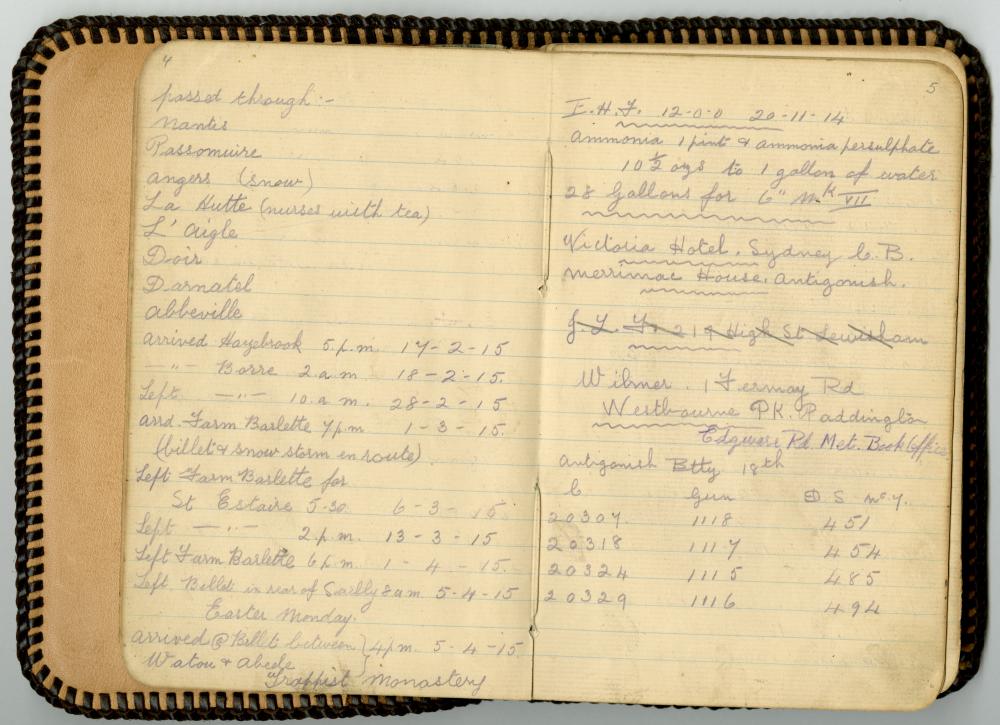 4
passed through :-
Nantis
Passomuire
Angers (snow)
La Hutte (nurses with tea)
L'Aigle
Doir
Darnatel
Abbeville
Arrived Hazebrook 5.p.m. 17-2-15
—"— Borre 2.a.m. 18-2-15.
Left —"— 10.a.m. 28-2-15
arrd. Farm Barlette 7pm 1-3-15.
(billet & snow storm en route)
Left Farm Barlette for
St Estaire 5-30 6-3-15
Left —"— 2.p.m. 13-3-15
Left Farm Barlette 6p.m. 1-4-15.
Left Billet in rear of Sailly 8am 5-4-15
Easter Monday.
arrived @ Billet between } 4pm. 5-4-15
Watou & Abeele }
Trappist Monastery
5
12-0-0 20-11-14
Ammonia 1 pint & ammonia persulphate
10½ ozs to 1 gallon of water
28 Gallons for 6" Mk VII
Victoria Hotel, Sydney C.B.
Merrimac House, Antigonish.
219 High St Lewisham
Wilmer. 1 Fermoy Rd
Westbourne PK. Paddington
Edgware Rd. Met. Book Office
Antigonish Btty 18th
C. Gun D.S. No 7.
20307. 1118 451
20318 1117 454
20324 1115 485
20329 1116 494